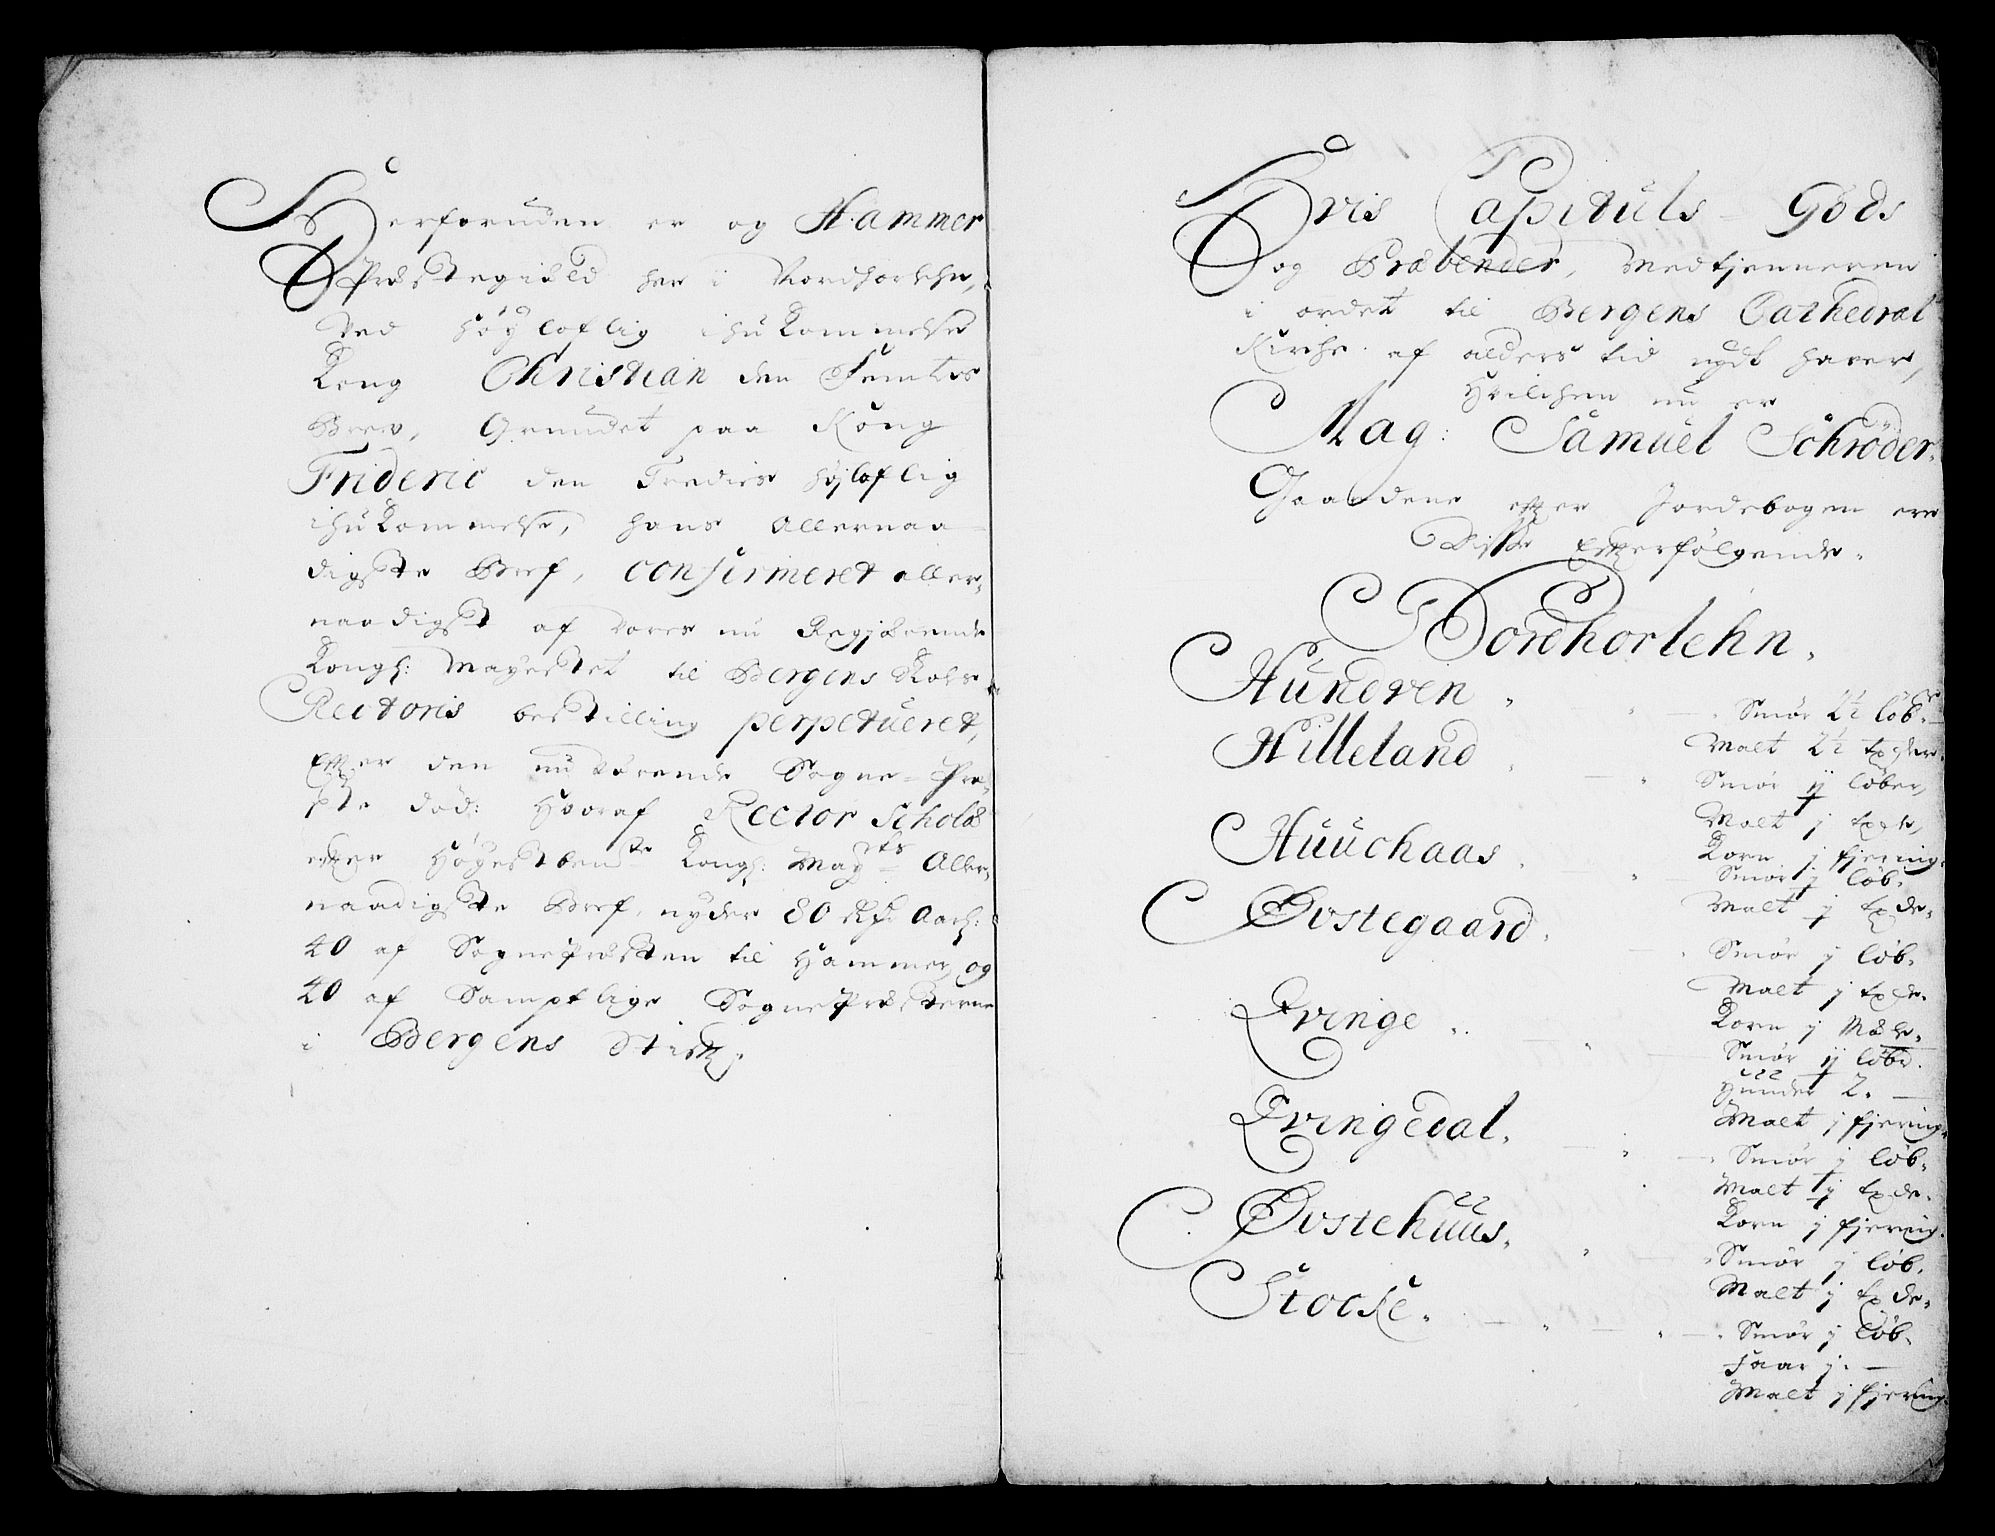 Herforuden er og Hammer
Præstegield her i Nordhorlehn,
ved Høyloflig ihukommelse
Kong Christian den Femtes
Brev, Grundet paa Kong
Frideric den Tredies Højloflig
ihukommelse, hans Allernaa
digste Bref, confirmeret aller,
naadigst af Vores nu Regjærende
Kongl: Mayestet til Bergens Skoles
Rectoris bestilling perpetueret,
Efter den nu værende Sogne-Præ,
ste død: Hvoraf Rector Scholæ
efter Høyestbemte Kongl: Mayts Aller,
naadigste Bref, nyder 80 Rdr Aarl:
40 af SognePræsten til Hammer, og
40 af Samptlige SognePræsterne
i Bergens Stift.
Hvis Capituls-Gods
og Præbender, Medtjenneren
i ordet til Bergens Cathedral
Kirche af alders tid nydt haver,
Hvilchen nu er
Mag: Samuel Schrøder.
Gaardene efter Jordebogen ere
Disse Efterfølgende.
Nordhorlehn.
Hundven. Smør 2½ løb.
Malt 2½
Hilleland Smør ij løber,
Malt j
Korn j fjering.
Huuchaas. Smør j løb.
Malt j
Øvstegaard. Smør j løb.
Malt j
Korn j Mæle.
Qvinge. Smør ij løbr.
Huuder 2.
Malt j fjering.
Qvingedal. Smør j løb.
Malt j
Korn j fjering.
Øvstehuus. Smør j løb.
Malt j
Stocke. Smør j løb.
Faar j.
Malt j fjering.